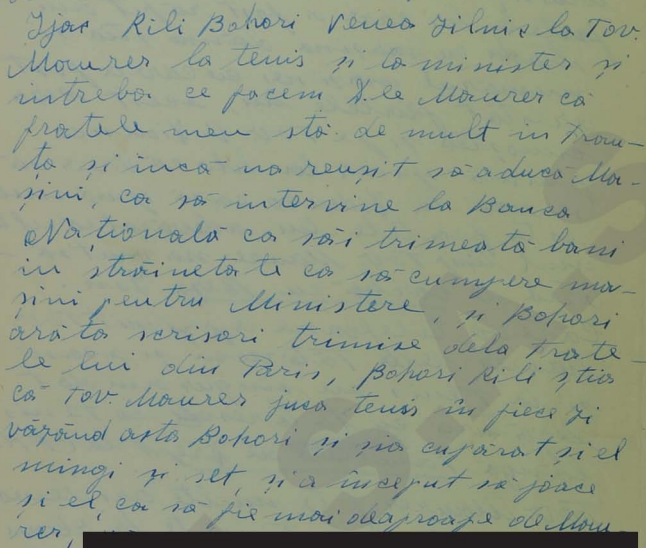 Izac Rili Bohori venea zilnic la Tov.
Maurer la tenis și la minister și
intreba ce facem D.le Maurer că
fratele meu stă de mult in Fran-
ța și incă na reușit să aducă Ma-
șini, ca să intervine la Banca
Națională ca săi trimeată bani
in străinetate ca să cumpere ma-
șini pentru Ministere, și Bohori
arăta scrisori trimise dela Frate-
le lui din Paris, Bohori Rili știa
că Tov. Maurer juca tenis în fiece zi
văzând asta Bohori și șia cupărat și el
mingi și set, și a început să joace
și el, ca să fie mai deaproape de Mau-
rer,